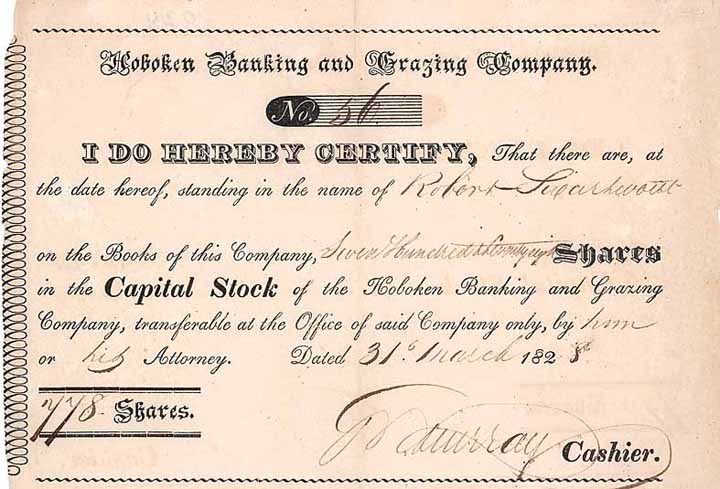 Hoboken Banking and Grazing Company.
No. 56
I DO HEREBY CERTIFY, That there are, at
the date hereof, standing in the name of Robert Swartwout
on the Books of this Company, Seven Hundred & Seventy eight Shares
in the Capital Stock of the Hoboken Banking and Grazing
Company, transferable at the Office of said Company only, by him
or his Attorney. Dated 31st March 1828
778 Shares.
Murray Cashier.